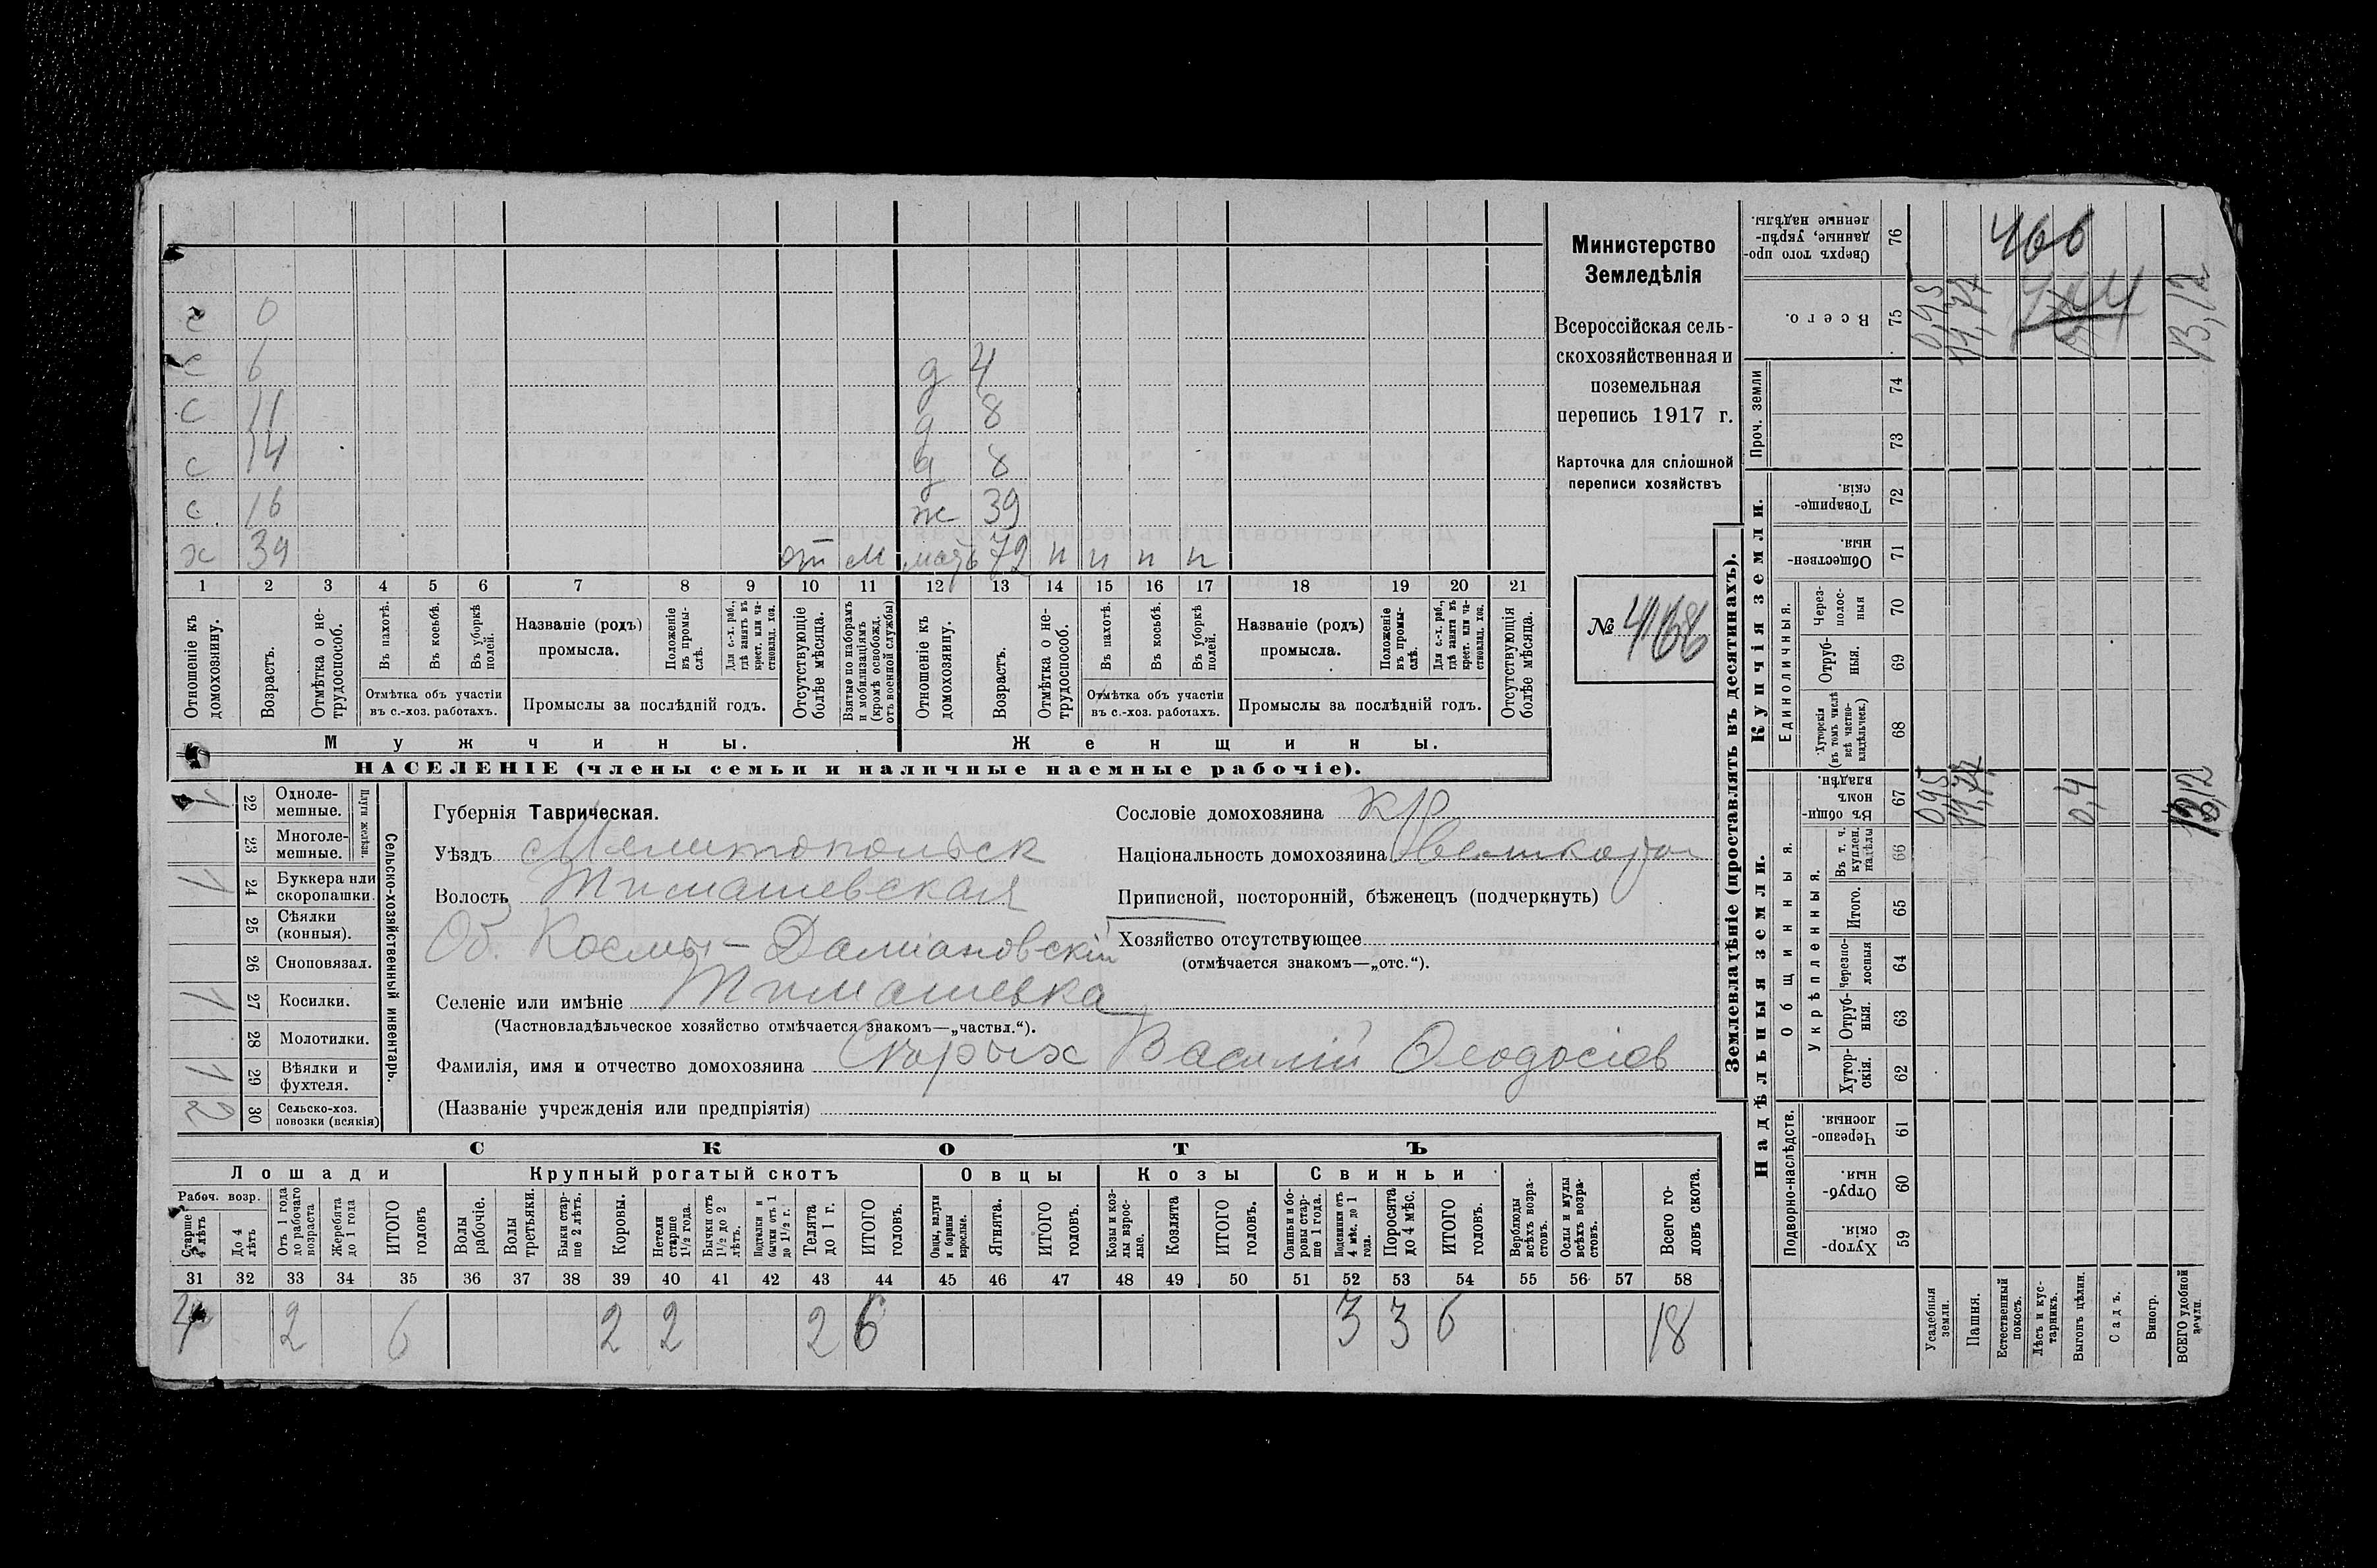 Министерство
Земледѣлія
Всероссійская сель-
скохозяйственная и
поземельная
перепись 1917 г.
Карточка для сплошной
переписи хозяйствъ
№ 468
с 0
с 6
с 11
с 14
с 16
х 39 от м
д 4
д 8
д 8
ж 39
мать 72 н н н н
1 2 3 4 5 6 7 8 9 10 11 12 13 14 15 16 17 18 19 20 21
Отношеніе къ домохозяину.
Возрастъ.
Отмѣтка о не-трудоспособ.
Въ пахотѣ.
Въ косьбѣ.
Въ уборкѣ полей.
Отмѣтка объ участіи въ с.-хоз. работахъ.
Названіе (родъ) промысла.
Положеніе въ промы-слѣ.
Для с.-х. раб., гдѣ занятъ въ крест. или ча-стновлад. хоз.
Промыслы за послѣдній годъ.
Отсутствующіе болѣе мѣсяца.
Взятые по наборамъ и мобилизаціямъ (кромѣ освобожд. отъ военной службы)
Отношеніе къ домохозяину.
Возрастъ.
Отмѣтка о не-трудоспособ.
Въ пахотѣ.
Въ косьбѣ.
Въ уборкѣ полей.
Отмѣтка объ участіи въ с.-хоз. работахъ.
Названіе (родъ) промысла.
Положеніе въ промы-слѣ.
Для с.-х. раб., гдѣ занята въ крест. или ча-стновлад. хоз.
Промыслы за послѣдній годъ.
Отсутствующія болѣе мѣсяца.
Мужчины.
Женщины.
НАСЕЛЕНІЕ (члены семьи и наличные наемные рабочіе).
Сельско-хозяйственный инвентарь.
Плуги желѣзн.
1 22 Одноле-мешные.
23 Многоле-мешные.
1 24 Буккера или скоропашки.
25 Сѣялки (конныя).
26 Сноповязал.
1 27 Косилки.
28 Молотилки.
1 29 Вѣялки и фухтеля.
2 30 Сельско-хоз. повозки (всякія)
Губернія Таврическая.
Уѣздъ Мелитопольск
Волость Тимашевская
Об. Космо-Даміановскій
Селеніе или имѣніе Тимашевка
(Частновладѣльческое хозяйство отмѣчается знакомъ—„частвл.“).
Фамилія, имя и отчество домохозяина Скорых Василій Ѳеодосіев
(Названіе учрежденія или предпріятія)
Сословіе домохозяина кр
Національность домохозяина великорос
Приписной, посторонній, бѣженецъ (подчеркнуть)
Хозяйство отсутствующее
(отмѣчается знакомъ—„отс.“).
СКОТЪ
Лошади
Крупный рогатый скотъ
Овцы
Козы
Свиньи
Рабоч. возр.
Старше 4 лѣтъ
До 4 лѣтъ
Отъ 1 года до рабочаго возраста
Жеребята до 1 года
ИТОГО головъ
Волы рабочіе.
Волы третьяки.
Быки стар-ше 2 лѣтъ.
Коровы.
Нетели старше 1½ года.
Бычки отъ 1½ до 2 лѣтъ.
Подтелки и бычки отъ 1 до 1½ г.
Телята до 1 г.
ИТОГО головъ.
Овцы, валухи и бараны взрослые.
Ягнята.
ИТОГО головъ.
Козы и коз-лы взрос-лые.
Козлята
ИТОГО головъ.
Свиньи и бо-ровы стар-ше 1 года.
Подсвинки отъ 4 мѣс. до 1 года.
Поросята до 4 мѣс.
ИТОГО головъ.
Верблюды всѣхъ возра-стовъ.
Ослы и мулы всѣхъ возра-стовъ.
Всего го-ловъ скота.
31 32 33 34 35 36 37 38 39 40 41 42 43 44 45 46 47 48 49 50 51 52 53 54 55 56 57 58
4 2 6 2 2 2 6 3 3 6 18
Землевладѣніе (проставлять въ десятинахъ).
Надѣльныя земли.
Купчія земли.
Проч. земли
Подворно-наслѣдств.
Общинныя.
Укрѣпленныя.
Единоличныя.
Сверхъ того про-данные, укрѣп-ленные надѣлы. 76
Всего. 75
74
73
Товарище-скія. 72
Обществен-ныя. 71
Через-полос-ныя 70
Отруб-ныя. 69
Хуторскія (въ томъ числѣ всѣ частно-владѣльческ.) 68
Въ общи-номъ владѣн. 67
Въ т. ч. куплен. надѣлы 66
Итого. 65
Черезпо-лосныя 64
Отруб-ныя. 63
Хутор-скія. 62
Черезпо-лосныя 61
Отруб-ныя. 60
Хутор-скія. 59
Усадебныя земли.
Пашня.
Естественный покосъ.
Лѣсъ и кус-тарникъ.
Выгонъ цѣлин.
Садъ.
Виногр.
ВСЕГО удобной земли.
466
0,95
11,77
13,12
0,95
11,77
0,4
13,12